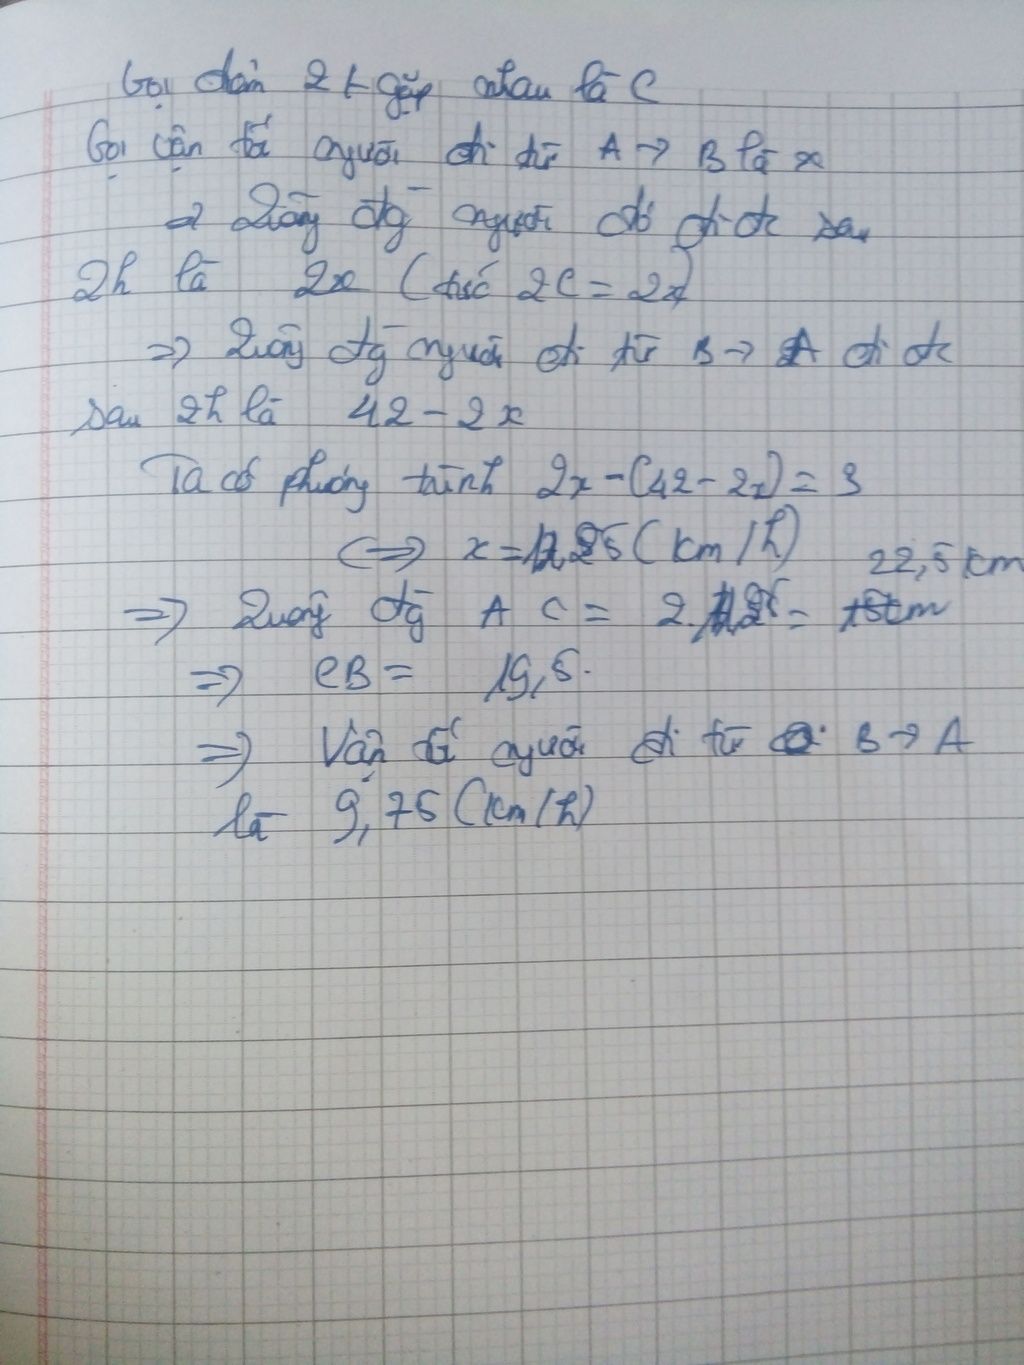 Gọi điểm 2 t gặp nhau là C
Gọi vận tốc người đi từ A → B là x
⇒ Quãng đg người đó đi đc sau
2h là 2x ( tức 2C = 2x)
⇒ Quãng đg người đi từ B → A đi đc
sau 2h là 42 - 2x
Ta có phương trình 2x - (42 - 2x) = 3
⇔ x = 11,25 (km/h)
22,5 km
⇒ Quãng đg A C = 2. 11,25 =
⇒ CB = 19,5.
⇒ Vận tốc người đi từ B → A
là 9,75 (km/h)